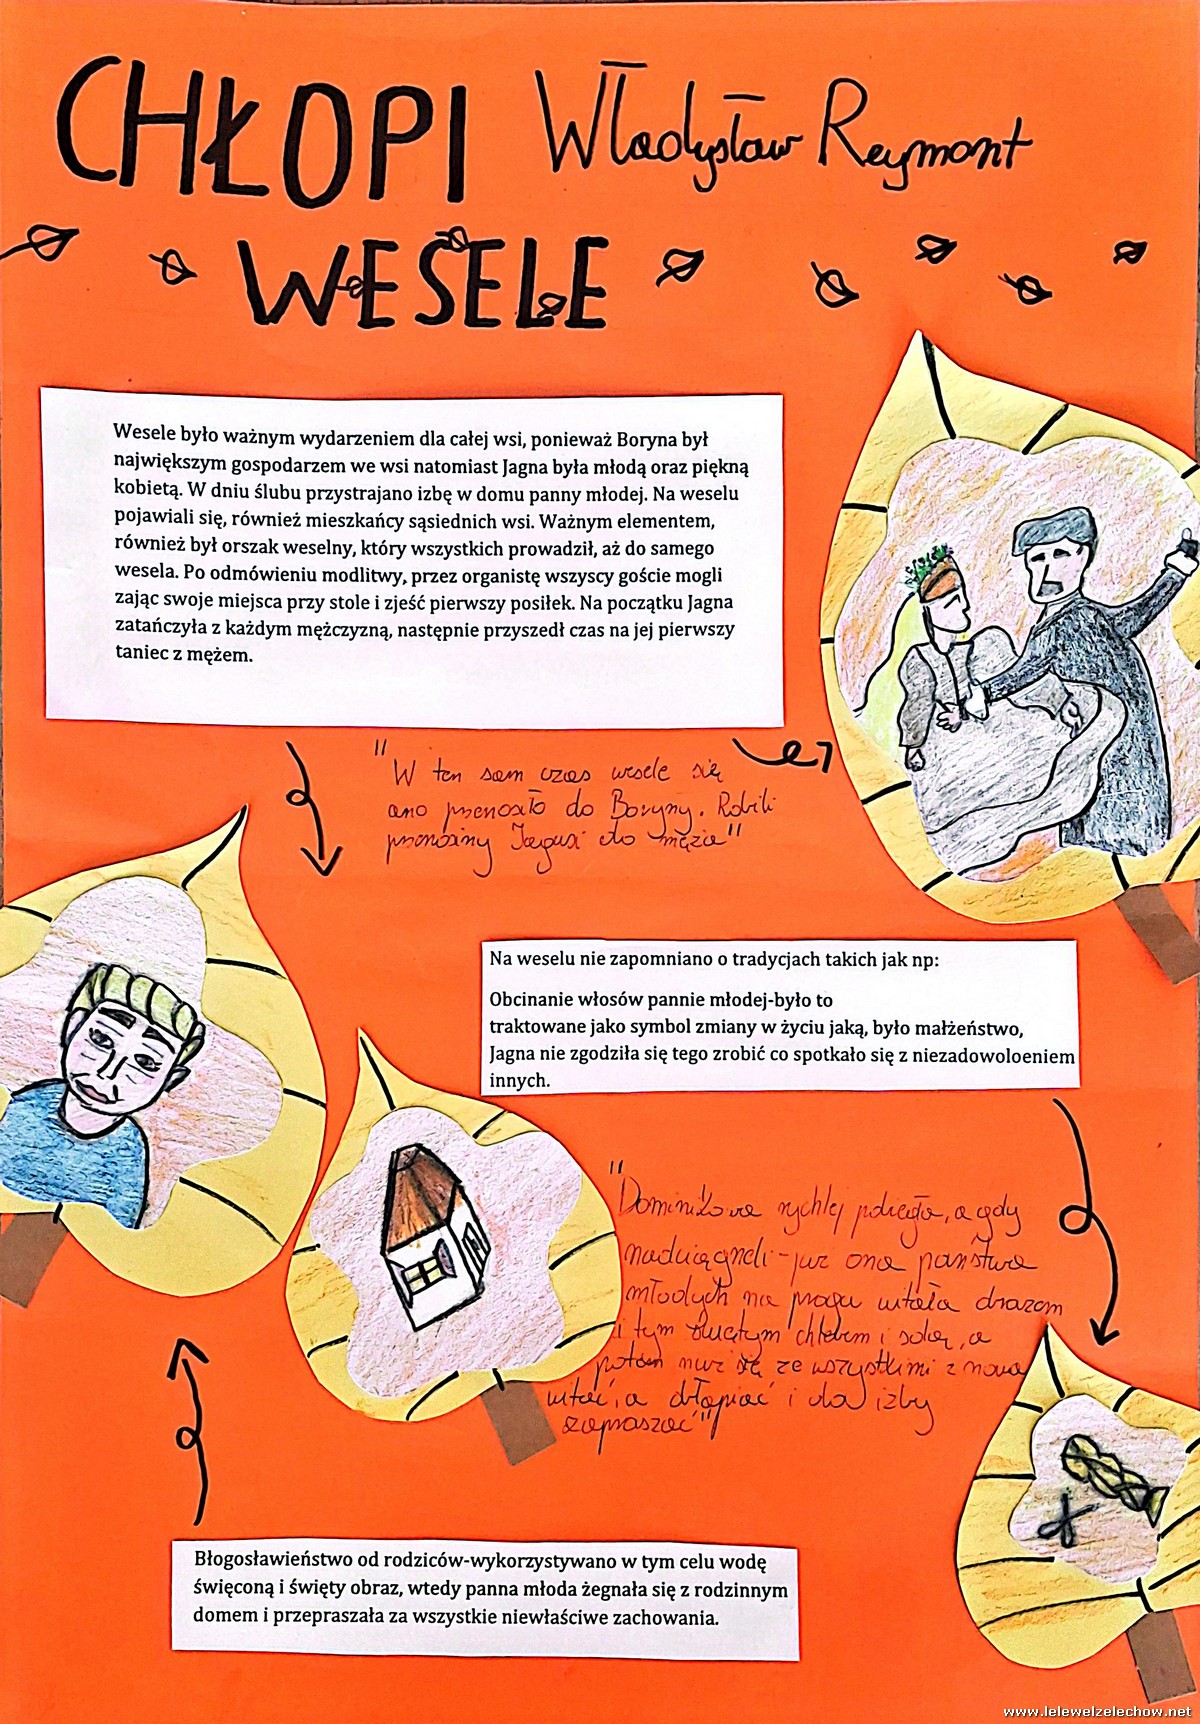 CHŁOPI Władysław Reymont
WESELE
Wesele było ważnym wydarzeniem dla całej wsi, ponieważ Boryna był
największym gospodarzem we wsi natomiast Jagna była młodą oraz piękną
kobietą. W dniu ślubu przystrajano izbę w domu panny młodej. Na weselu
pojawiali się, również mieszkańcy sąsiednich wsi. Ważnym elementem,
również był orszak weselny, który wszystkich prowadził, aż do samego
wesela. Po odmówieniu modlitwy, przez organistę wszyscy goście mogli
zając swoje miejsca przy stole i zjeść pierwszy posiłek. Na początku Jagna
zatańczyła z każdym mężczyzną, następnie przyszedł czas na jej pierwszy
taniec z mężem.
"W ten sam czas wesele się
ano przenosiło do Boryny. Robili
przenosiny Jagusi do męża"
Na weselu nie zapomniano o tradycjach takich jak np:
Obcinanie włosów pannie młodej-było to
traktowane jako symbol zmiany w życiu jaką, było małżeństwo,
Jagna nie zgodziła się tego zrobić co spotkało się z niezadowoloeniem
innych.
"Dominikowa rychlej pobiegła, a gdy
nadciągneli-już ona państwa
młodych na progu witała obrazem
i tym świętym chlebem i solą, a
potem nuż się ze wszystkimi z nowa
witać, a obłapiać i do izby
zapraszać"
Błogosławieństwo od rodziców-wykorzystywano w tym celu wodę
święconą i święty obraz, wtedy panna młoda żegnała się z rodzinnym
domem i przepraszała za wszystkie niewłaściwe zachowania.
www.lelewelzelechow.net